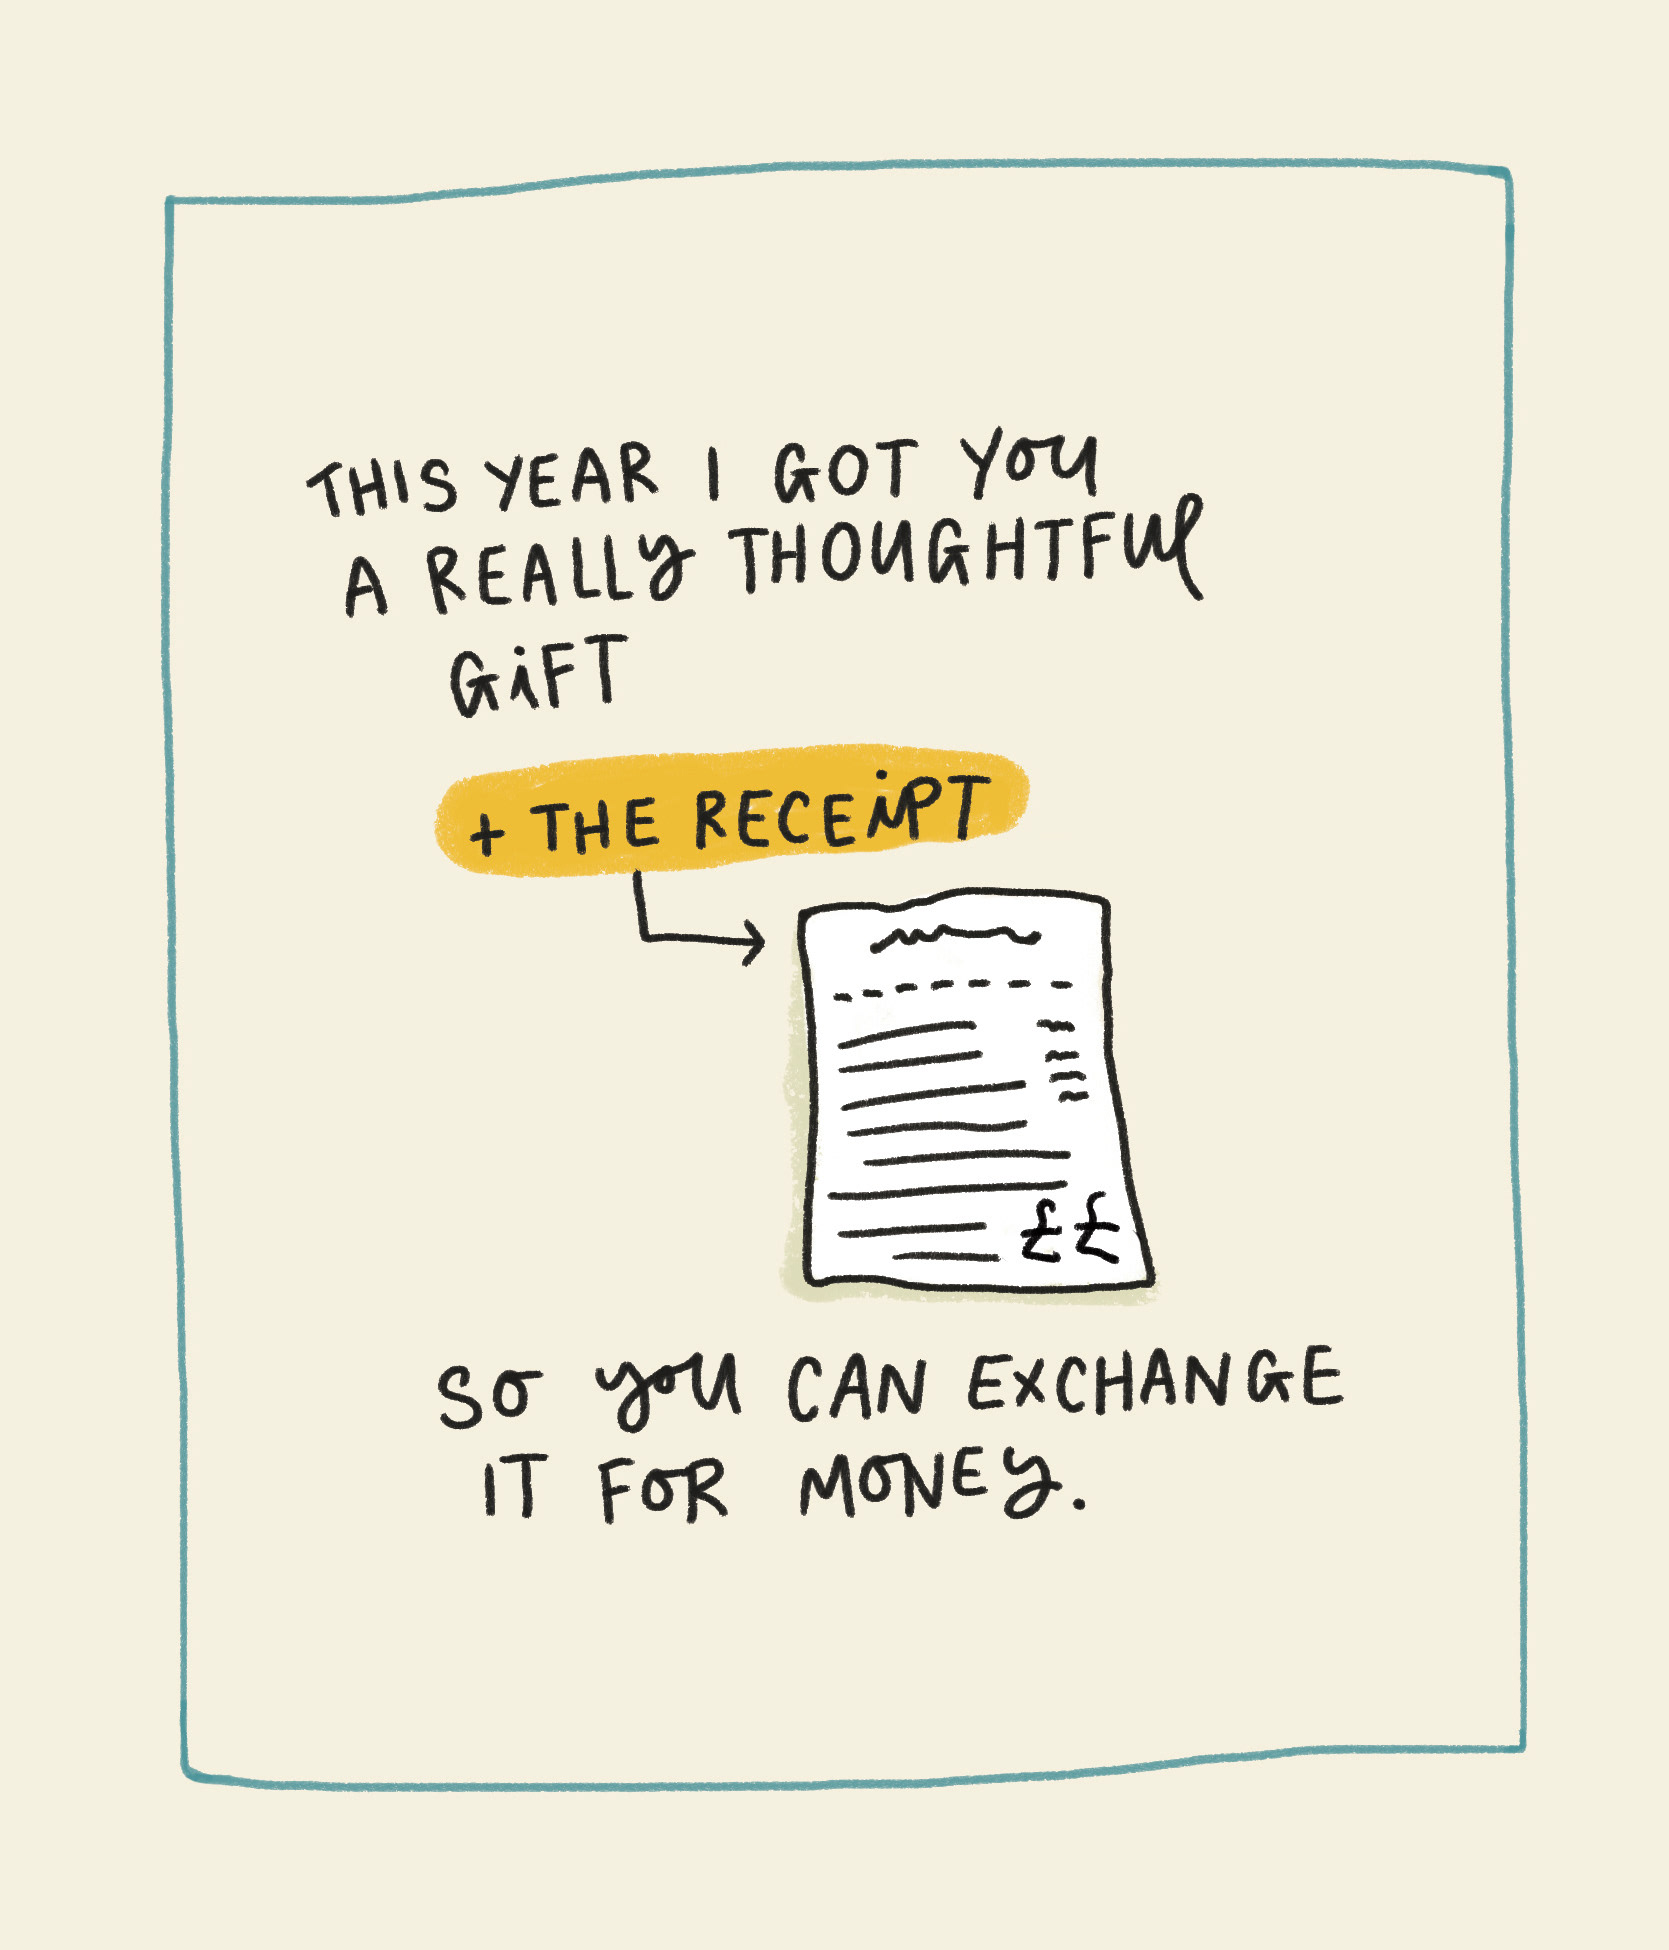 THIS YEAR I GOT YOU
A REALLY THOUGHTFUL
GiFT
+ THE RECEiPT
££
SO YOU CAN EXCHANGE
IT FOR MONEY.